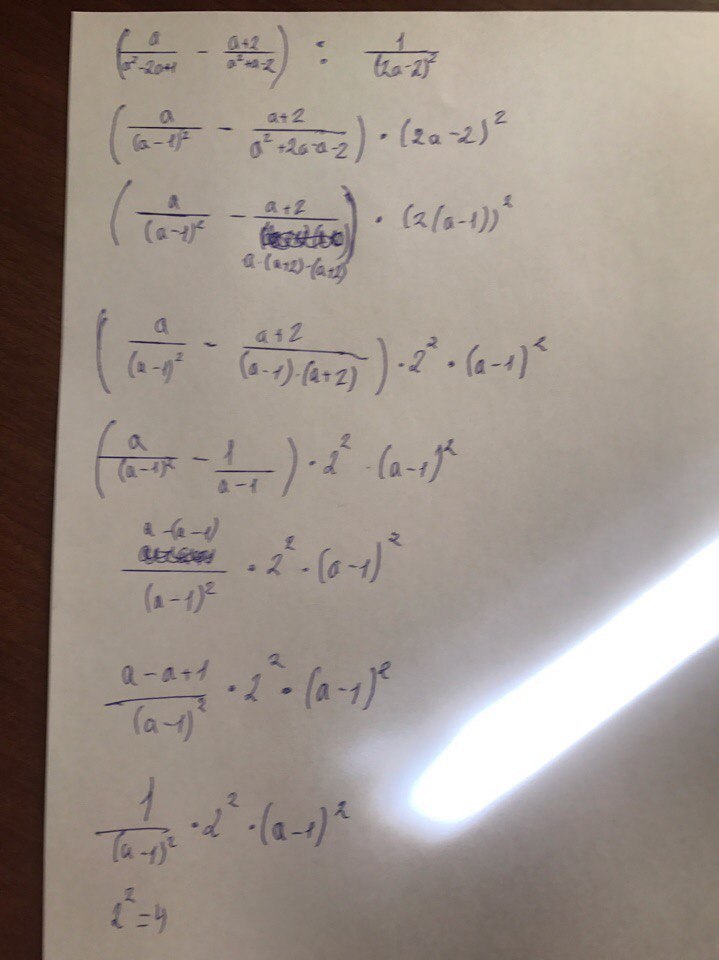 (a/(a²-2a+1) - (a+2)/(a²+a-2)) : 1/(2a-2)²
(a/(a-1)² - (a+2)/(a²+2a-a-2)) · (2a-2)²
(a/(a-1)² - (a+2)/(a·(a+2)-(a+2))) · (2(a-1))²
(a/(a-1)² - (a+2)/((a-1)·(a+2))) · 2² · (a-1)²
(a/(a-1)² - 1/(a-1)) · 2² · (a-1)²
(a-(a-1))/(a-1)² · 2² · (a-1)²
(a-a+1)/(a-1)² · 2² · (a-1)²
1/(a-1)² · 2² · (a-1)²
2² = 4